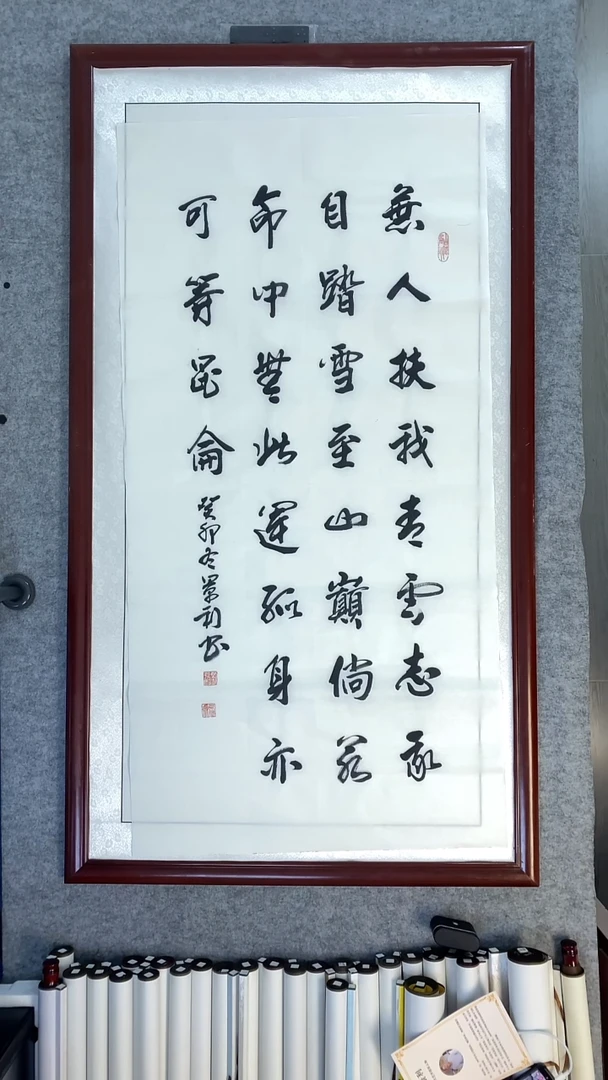 無人扶我青雲志我
自踏雪至山巔倘若
命中無此運孤身亦
可等昆侖
癸卯冬景利书